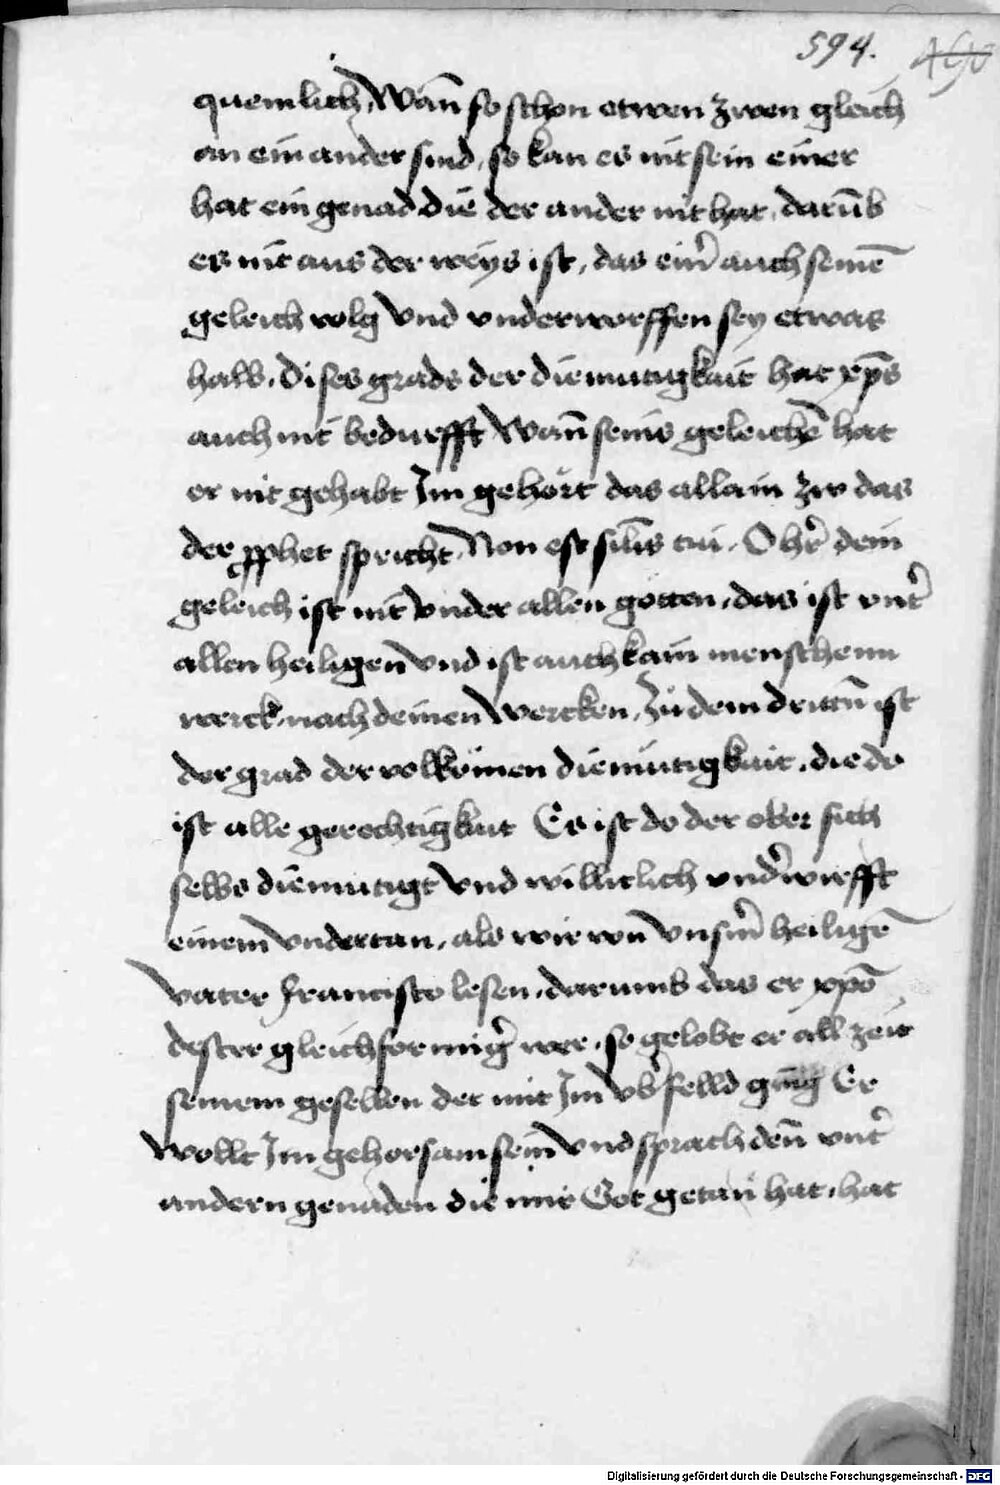 594.
quemlich, Wañ so schon etwen zwen gleich
an ein ander sind, so kan es nit sein einer
hat ein genad die der ander nit hat, darūb
es nit aus der weys ist, das ein auch seinē
geleich volg vnd vnderworffen sey etwas
halb. Dises grads der diemutigkait hat xp̄s
auch nit bedurfft Wañ seins geleichē hat
er nit gehabt Im gehört das allain zw das
der pphet spricht, Non est sil̄is tui. O hr̄ dein
geleich ist nit vnder allen götten, das ist vnt'
allen heiligen vnd ist auch kain menschenn
werck nach deinen Wercken, Zu dem drittñ ist
der grad der volkömen diemütigkait, die do
ist alle gerechtigkait Es ist do der ober sich
selbs diemutigt vnd willitlich vnd'wirfft
einem vndertan, als wir von vnserm heiligē
vater francisco lesen, darumb das er xpō
dester gleichformig' wer, so gelobt er all zeit
seinem gesellen der mit Im vb' felld ging Er
wollt Im gehorsam sein vnd sprach den̄ vnt'
andern genaden die mir Got getan hat, hat
Digitalisierung gefördert durch die Deutsche Forschungsgemeinschaft - DFG